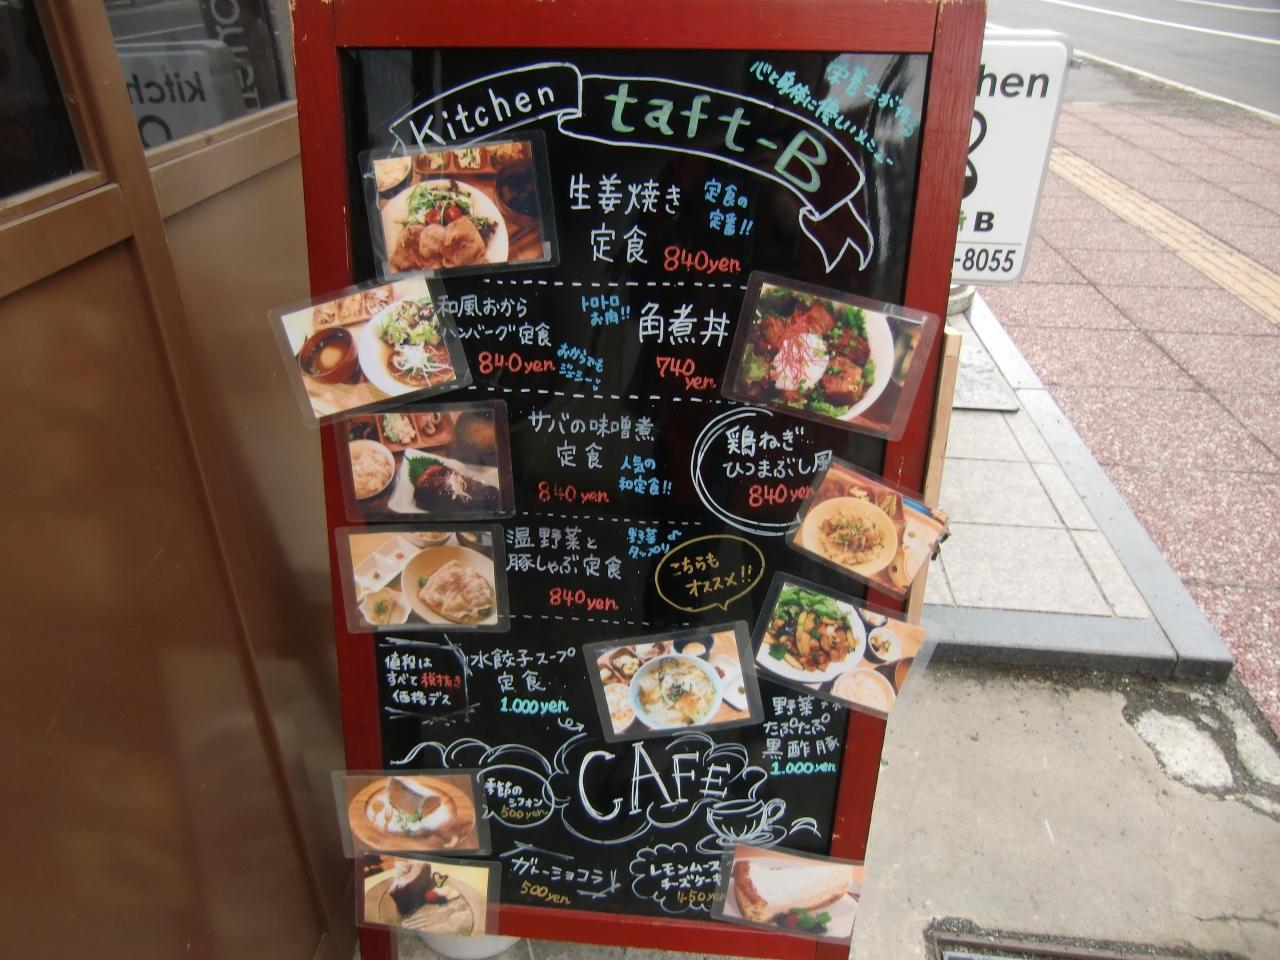 Kitchen taft-B
栄養士が作る
心と身体に優しいメニュー
生姜焼き
定食
840yen
定食の
定番!!
和風おから
ハンバーグ定食
840yen
おからでも
ジューシー
トロトロ
お肉!!
角煮丼
740
yen
サバの味噌煮
定食
840yen
人気の
和定食!!
鶏ねぎ
ひつまぶし風
840yen
温野菜と
豚しゃぶ定食
840yen
野菜
タップリ♪
こちらも
オススメ!!
値段は
すべて税抜き
価格デス
水餃子スープ
定食
1.000yen
野菜
たぷたぷ
黒酢豚
1.000yen
CAFE
季節の
シフォン
500yen
ガトーショコラ
500yen
レモンムース
チーズケーキ
450yen
hen
B
-8055
kitch